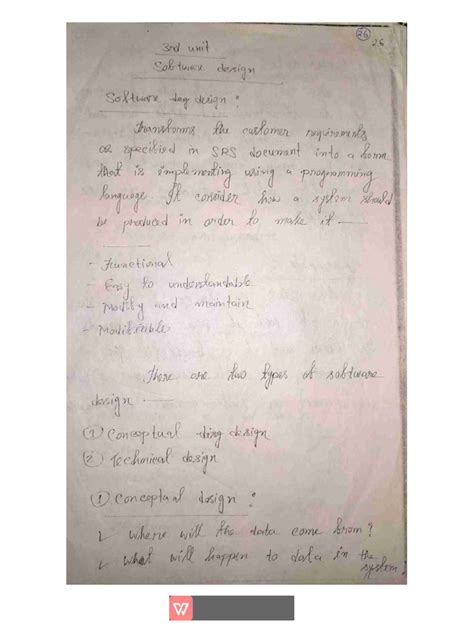 26
26
3rd unit
Software design
Software design :
Transforms the customer requirements
as specified in SRS document into a form
that is implementing using a programming
language. It consider how a system should
be produced in order to make it —
- Functional
- Easy to understandable
- Modify and maintain
- Modifieable
There are two types of software
design —
① Conceptual design
② Technical design
① Conceptual design :
✓ where will the data come from?
✓ what will happen to data in the
system?
W